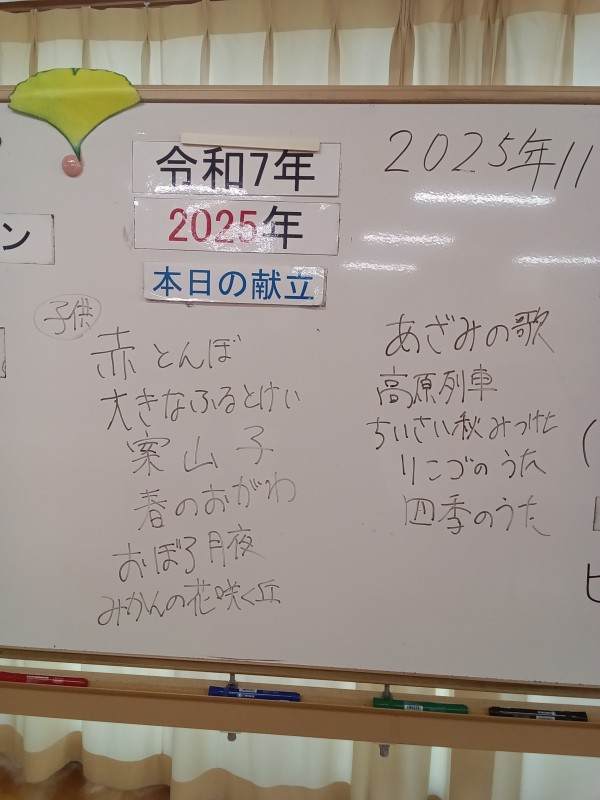 令和7年
2025年
本日の献立
2025年11
ン
子供
赤とんぼ
大きなふるとけい
案山子
春のおがわ
おぼろ月夜
みかんの花咲く丘
あざみの歌
高原列車
ちいさい秋みつけた
リンゴのうた
四季のうた
(
ヒ